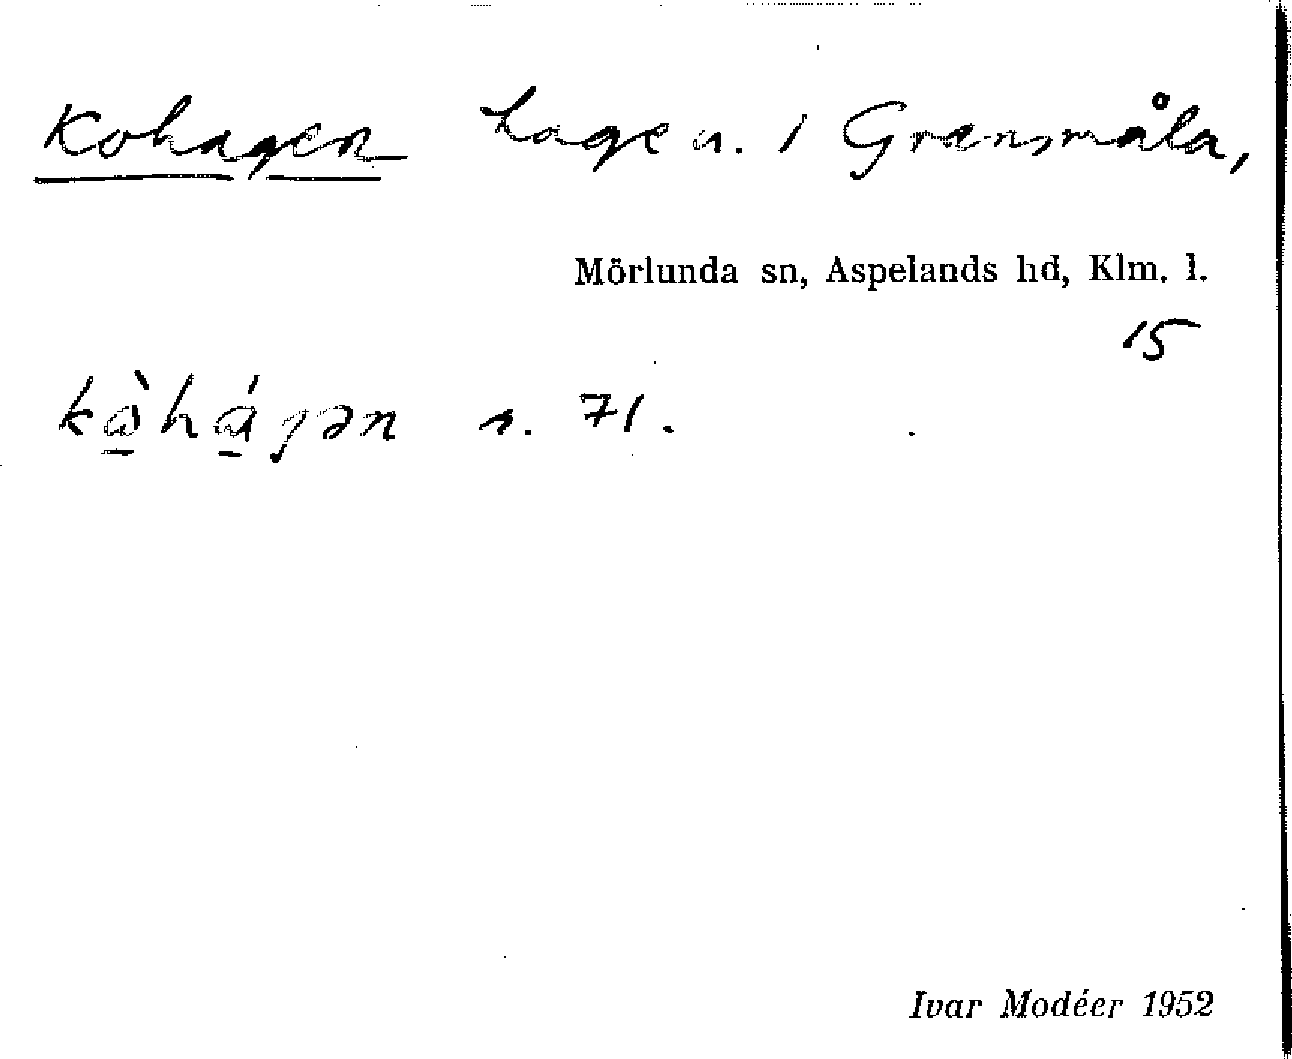 Kohagen hage n. i Gransmåla,
Mörlunda sn, Aspelands hd, Klm. l.
15
kὼ̠hά̠gən s. 71.
Ivar Modéer 1952